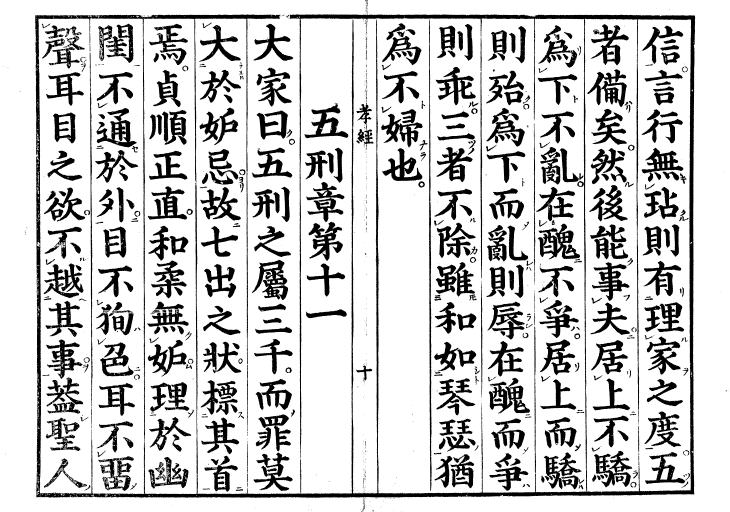 信言行無玷則有理家之度五
者備矣然後能事夫居上不驕
爲下不亂在醜不爭居上而驕
則殆爲下而亂則辱在醜而爭
則乖三者不除雖和如琴瑟猶
爲不婦也
孝經
十
五刑章第十一
大家曰五刑之屬三千而罪莫
大於妒忌故七出之狀標其首
焉貞順正直和柔無妒理於幽
閨不通於外目不狥色耳不畱
聲耳目之欲不越其事葢聖人